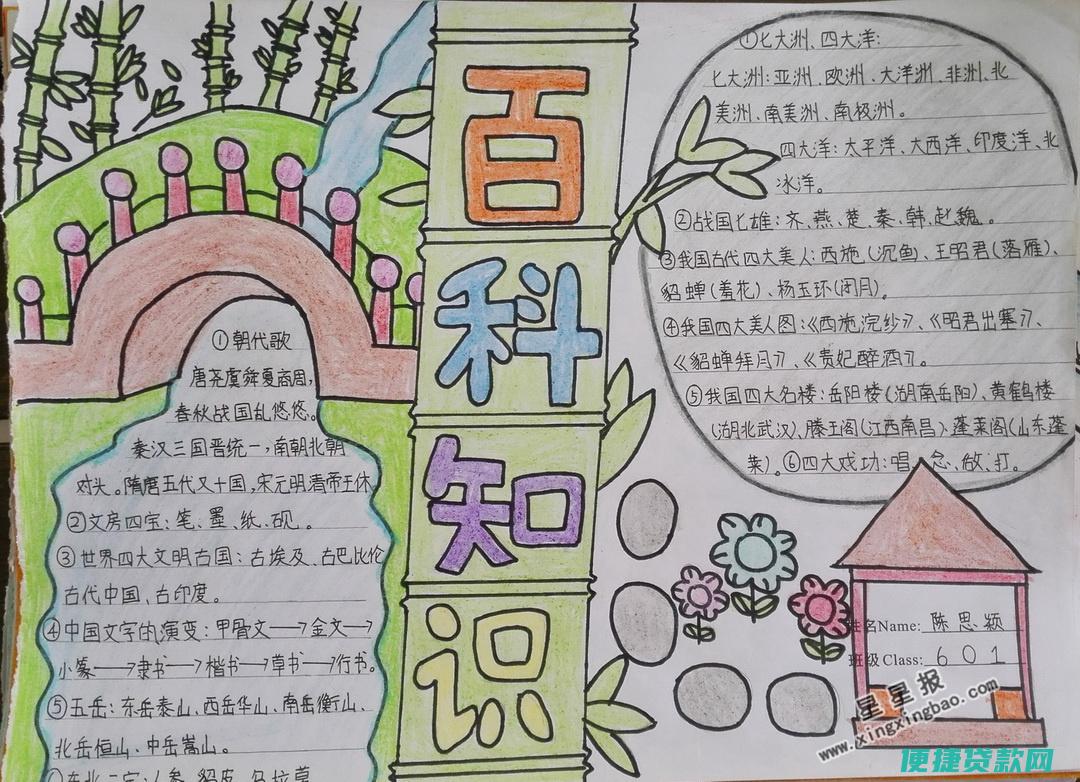 百科知识
①朝代歌
唐尧虞舜夏商周,
春秋战国乱悠悠。
秦汉三国晋统一,南朝北朝
对头。隋唐五代又十国,宋元明清帝王休
②文房四宝:笔、墨、纸、砚。
③世界四大文明古国:古埃及、古巴比伦
古代中国、古印度。
④中国文字的演变:甲骨文→金文→
小篆→隶书→楷书→草书→行书。
⑤五岳:东岳泰山、西岳华山、南岳衡山、
北岳恒山、中岳嵩山。
①七大洲、四大洋:
七大洲:亚洲、欧洲、大洋洲、非洲、北
美洲、南美洲、南极洲。
四大洋:太平洋、大西洋、印度洋、北
冰洋。
②战国七雄:齐、燕、楚、秦、韩、赵、魏。
③我国古代四大美人:西施(沉鱼)、王昭君(落雁)、
貂蝉(羞花)、杨玉环(闭月)。
④我国四大美人图:《西施浣纱》、《昭君出塞》、
《貂蝉拜月》、《贵妃醉酒》。
⑤我国四大名楼:岳阳楼(湖南岳阳)、黄鹤楼
(湖北武汉)、滕王阁(江西南昌)、蓬莱阁(山东蓬
莱)。⑥四大戏功:唱、念、做、打。
姓名Name: 陈思颖
班级Class: 601
星星报
www.xingxingbao.com
便捷贷款网